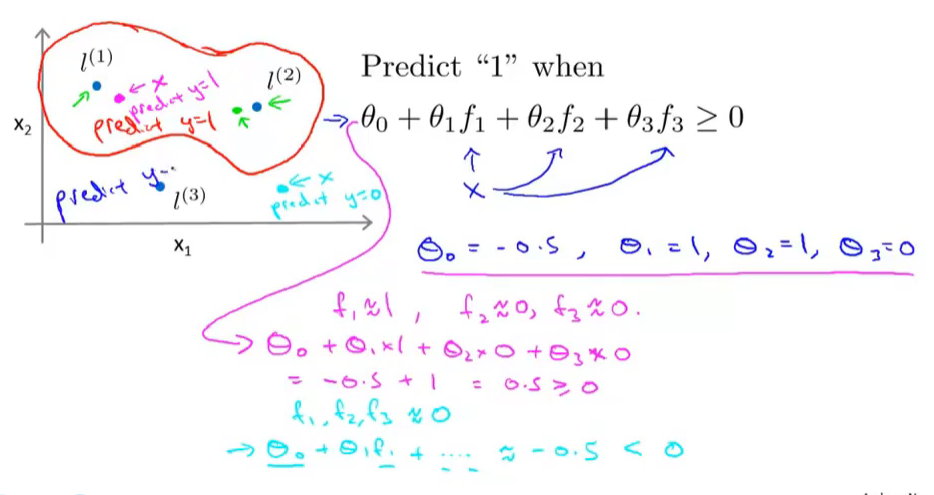 l^(1)
← x
predict y=1
l^(2)
predict y=1
x₂
predict y=··
l^(3)
← x
predict y=0
x₁
Predict “1” when
θ₀ + θ₁f₁ + θ₂f₂ + θ₃f₃ ≥ 0
x
θ₀ = -0.5, θ₁=1, θ₂=1, θ₃=0
f₁≈1, f₂≈0, f₃≈0.
→ θ₀ + θ₁×1 + θ₂×0 + θ₃×0
= -0.5 + 1 = 0.5 ≥ 0
f₁, f₂, f₃ ≈ 0
→ θ₀ + θ₁f₁ + .... ≈ -0.5 < 0